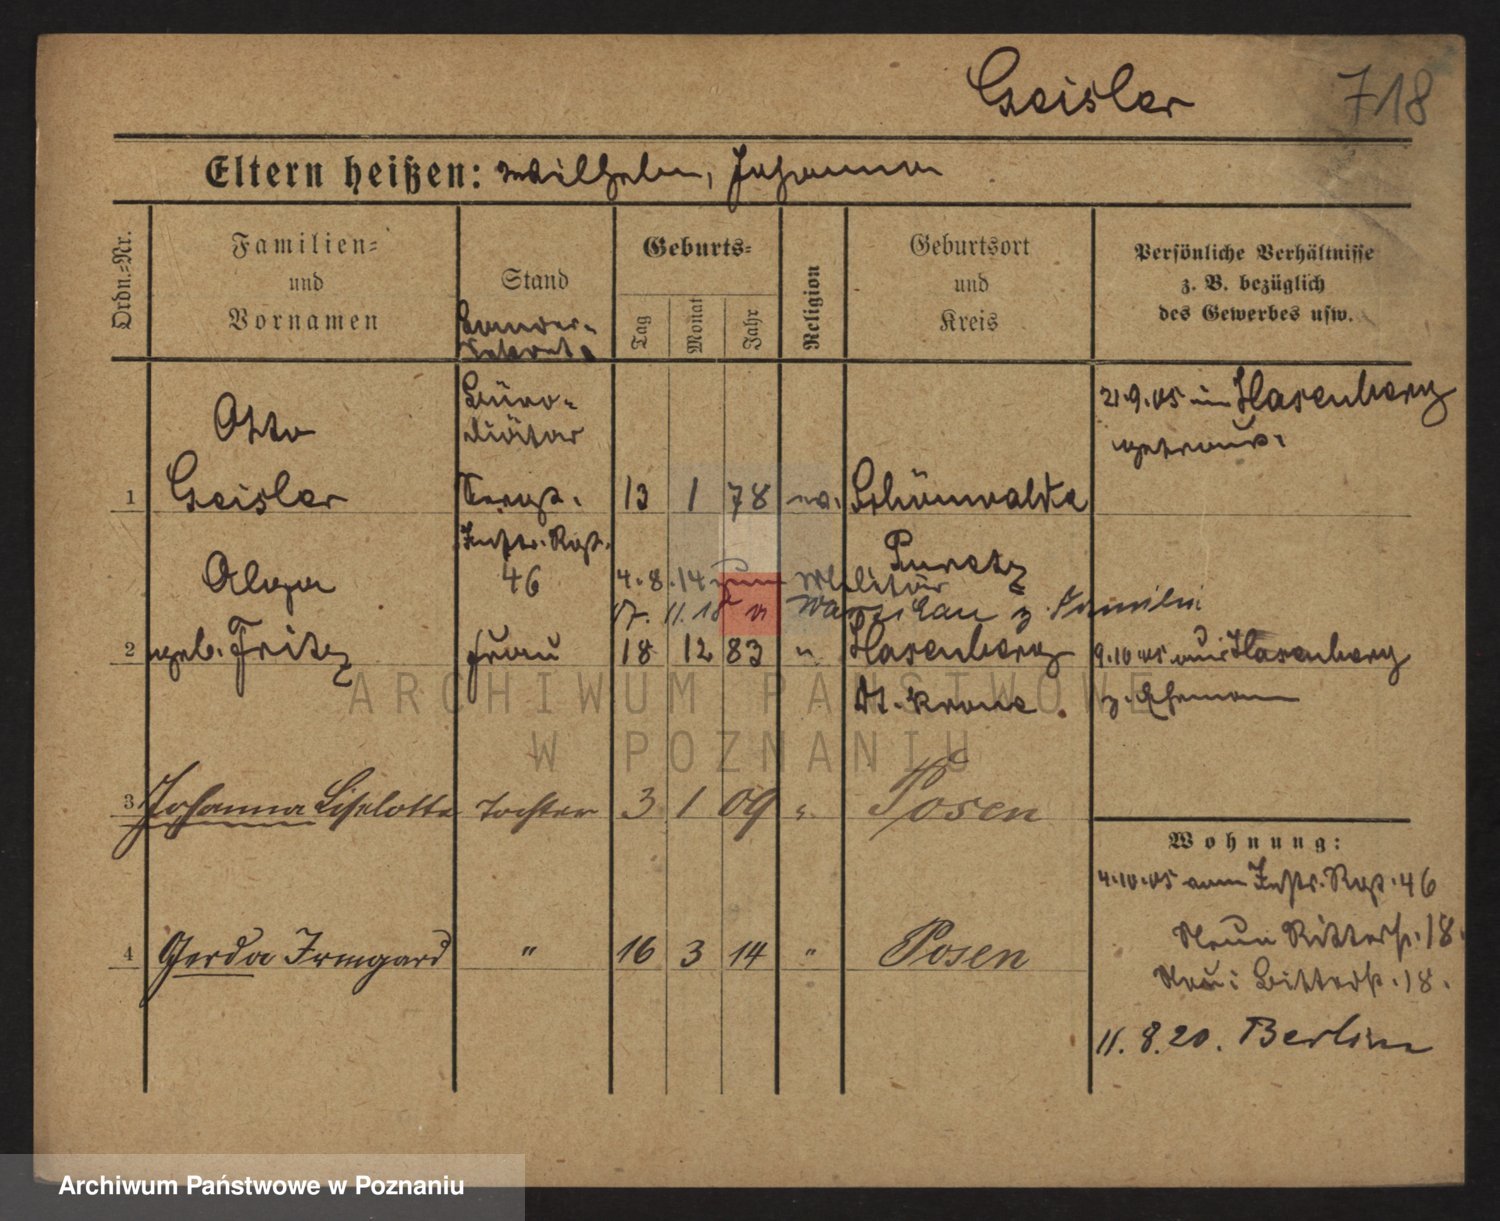 Geisler 718
Eltern heißen: Wilhelm, Johanna
Ordn.-Nr.
Familien-
und
Vornamen
Stand
Geburts-
Tag
Monat
Jahr
Religion
Geburtsort
und
Kreis
Persönliche Verhältnisse
z. B. bezüglich
des Gewerbes usw.
Landes-
sekretär
Otto
Büro-
diätar
21.9.05 in Hasenberg
getraut.
1 Geisler Sergt. 13 1 78 ev. Schönwalde
Inftr. Rgt.
46
4.8.14 zum Militär
17.11.18 v. z. Familie
2 geb. Fritz Frau 18 12 83 " Hasenberg 9.10.05 aus Hasenberg
Dt. Krone z. Ehemann
3 Johanna Liselotte Tochter 3 1 09 " Posen
Wohnung:
4.10.05 vom Inftr. Rgt. 46
4 Gerda Irmgard " 16 3 14 " Posen
Neue Ritterst. 18.
Neu: Bitterst. 18.
11.8.20. Berlin
ARCHIWUM PAŃSTWOWE
W POZNANIU
Archiwum Państwowe w Poznaniu